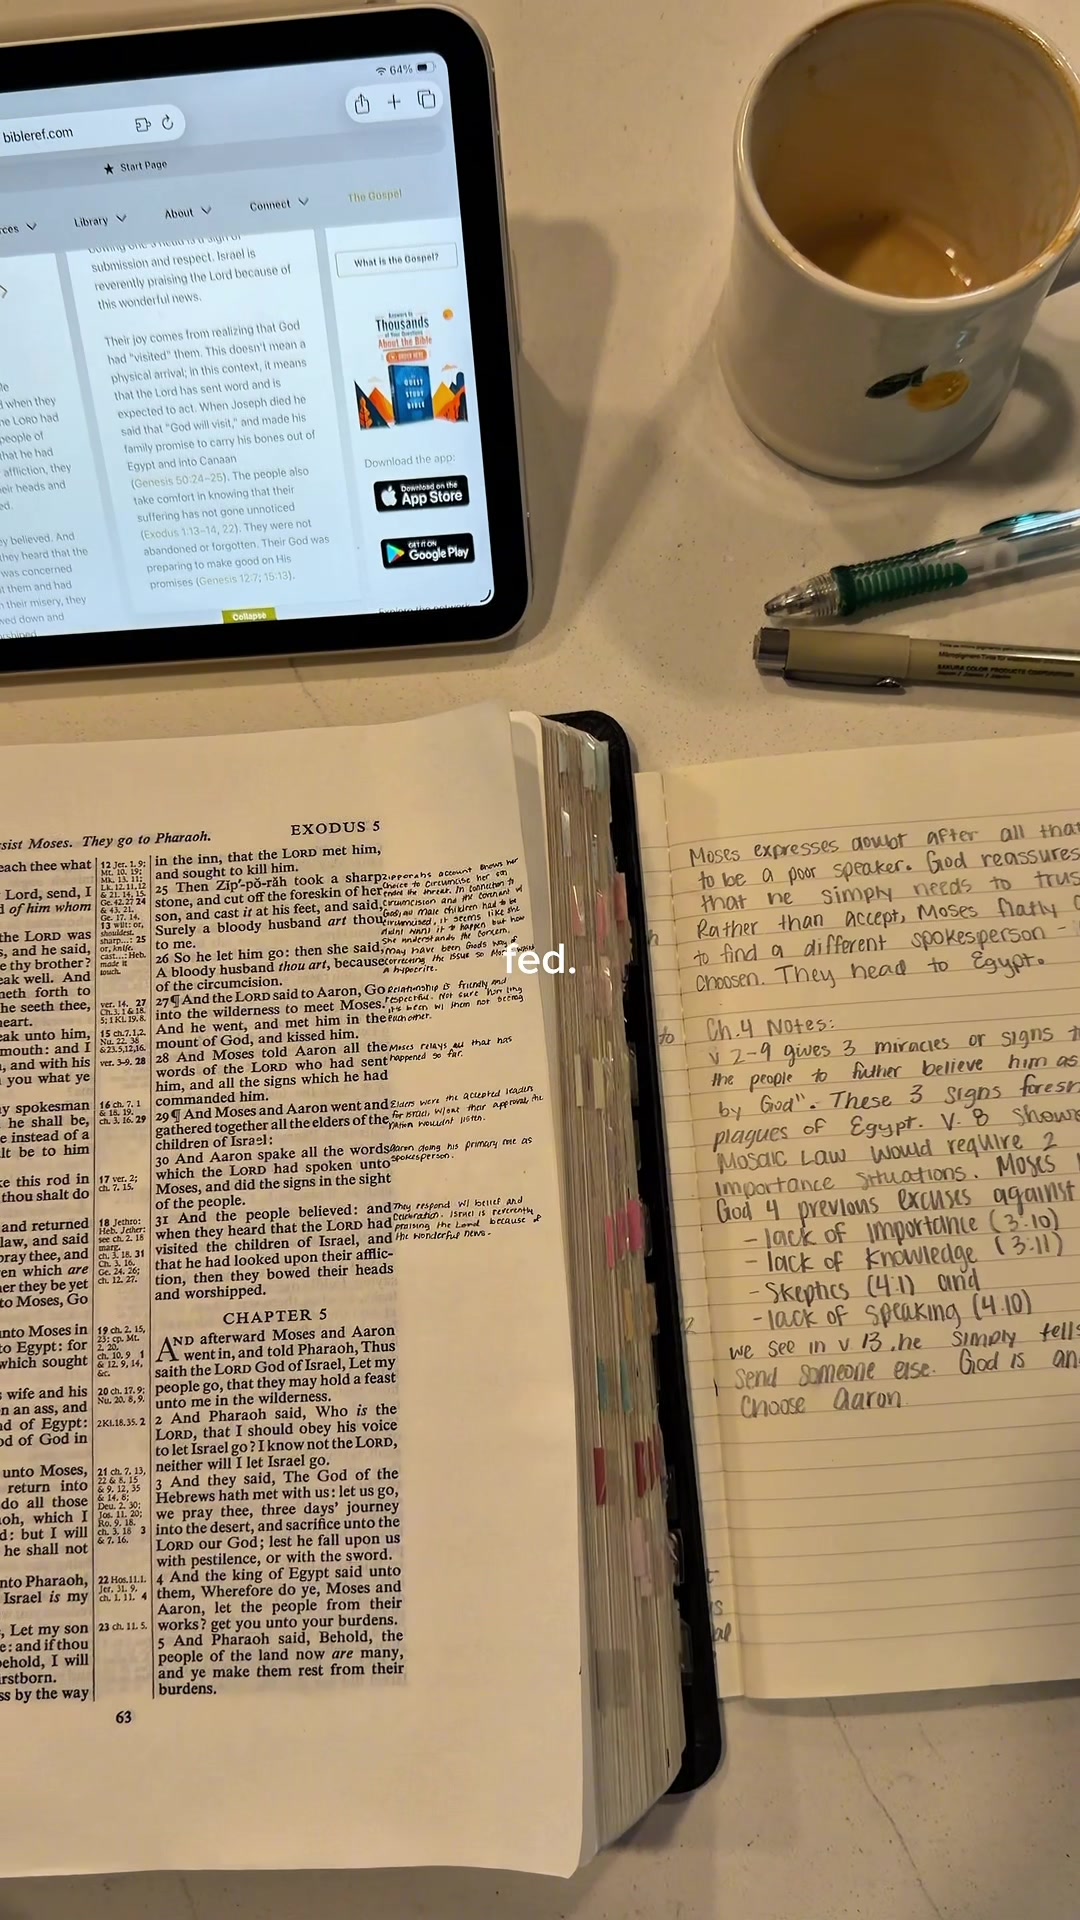 64%
bibleref.com
★ Start Page
rces
Library
About
Connect
The Gospel
submission and respect. Israel is
reverently praising the Lord because of
this wonderful news.
Their joy comes from realizing that God
had "visited" them. This doesn't mean a
physical arrival; in this context, it means
that the Lord has sent word and is
expected to act. When Joseph died he
said that "God will visit," and made his
family promise to carry his bones out of
Egypt and into Canaan
(Genesis 50:24–25). The people also
take comfort in knowing that their
suffering has not gone unnoticed
(Exodus 1:13–14, 22). They were not
abandoned or forgotten. Their God was
preparing to make good on His
promises (Genesis 12:7; 15:13).
Collapse
d when they
he LORD had
people of
that he had
affliction, they
eir heads and
ed.
y believed. And
they heard that the
was concerned
t them and had
their misery, they
wed down and
What is the Gospel?
Answers to
Thousands
of Your Questions
About the Bible
ORDER HERE
QUEST
STUDY
BIBLE
Download the app:
Download on the
App Store
GET IT ON
Google Play
SAKURA COLOR PRODUCTS CORPORATION
fed.
sist Moses. They go to Pharaoh.
EXODUS 5
each thee what
Lord, send, I
d of him whom
the LORD was
s, and he said,
e thy brother?
eak well. And
meth forth to
he seeth thee,
heart.
eak unto him,
mouth: and I
, and with his
you what ye
y spokesman
he shall be,
e instead of a
lt be to him
ke this rod in
thou shalt do
and returned
law, and said
pray thee, and
en which are
er they be yet
to Moses, Go
unto Moses in
to Egypt: for
which sought
s wife and his
on an ass, and
d of Egypt:
od of God in
unto Moses,
return into
do all those
oh, which I
d: but I will
he shall not
nto Pharaoh,
Israel is my
, Let my son
e: and if thou
behold, I will
rstborn.
ss by the way
12 Jer. 1. 9;
Mt. 10. 19;
Mk. 13. 11;
Lk. 12. 11, 12
& 21. 14, 15.
Ge. 42. 27 24
& 43. 21.
Ge. 17. 14.
13 wilt: or,
shouldest.
sharp...: 25
or, knife.
cast...: Heb.
made it
touch.
ver. 14. 27
Ch. 3. 1 & 18.
5; 1 Ki. 19. 8.
15 ch. 7. 1, 2.
Nu. 22. 38
& 23. 5, 12, 16.
ver. 3-9. 28
16 ch. 7. 1
& 18. 19.
ch. 3. 16. 29
17 ver. 2;
ch. 7. 15.
18 Jethro:
Heb. Jether:
see ch. 2. 18
marg.
ch. 3. 18. 31
Ch. 3. 16.
Ge. 24. 26;
ch. 12. 27.
19 ch. 2. 15,
23: cp. Mt.
2. 20.
ch. 10. 9 1
& 12. 9, 14,
&c.
20 ch. 17. 9;
Nu. 20. 8, 9.
2 Ki. 18. 35. 2
21 ch. 7. 13,
22 & 8. 15
& 9. 12, 35
& 14. 8;
Deu. 2. 30;
Jos. 11. 20;
Ro. 9. 18.
ch. 3. 18 3
& 7. 16.
22 Hos. 11. 1.
Jer. 31. 9.
ch. 1. 11. 4
23 ch. 11. 5.
in the inn, that the LORD met him,
and sought to kill him.
25 Then Zip'-pō-răh took a sharp
stone, and cut off the foreskin of her
son, and cast it at his feet, and said,
Surely a bloody husband art thou
to me.
26 So he let him go: then she said,
A bloody husband thou art, because
of the circumcision.
27¶ And the LORD said to Aaron, Go
into the wilderness to meet Moses.
And he went, and met him in the
mount of God, and kissed him.
28 And Moses told Aaron all the
words of the LORD who had sent
him, and all the signs which he had
commanded him.
29¶ And Moses and Aaron went and
gathered together all the elders of the
children of Israel:
30 And Aaron spake all the words
which the LORD had spoken unto
Moses, and did the signs in the sight
of the people.
31 And the people believed: and
when they heard that the LORD had
visited the children of Israel, and
that he had looked upon their afflic-
tion, then they bowed their heads
and worshipped.
CHAPTER 5
AND afterward Moses and Aaron
went in, and told Pharaoh, Thus
saith the LORD God of Israel, Let my
people go, that they may hold a feast
unto me in the wilderness.
2 And Pharaoh said, Who is the
LORD, that I should obey his voice
to let Israel go? I know not the LORD,
neither will I let Israel go.
3 And they said, The God of the
Hebrews hath met with us: let us go,
we pray thee, three days' journey
into the desert, and sacrifice unto the
LORD our God; lest he fall upon us
with pestilence, or with the sword.
4 And the king of Egypt said unto
them, Wherefore do ye, Moses and
Aaron, let the people from their
works? get you unto your burdens.
5 And Pharaoh said, Behold, the
people of the land now are many,
and ye make them rest from their
burdens.
63
Zipporah's account shows her
choice to circumcise her son
ended the threat. In connection to
circumcision and the covenant w/
God, all male children had to be
circumcised. it seems like she
didnt want it to happen but now
she understands the concern.
may have been Gods way of
correcting the issue so
a hypocrite.
Relationship is friendly and
respectful. Not sure how long
it's been w/ them not seeing
each other.
Moses relays all that has
happened so far.
Elders were the accepted leaders
for Israel. W/out their approval, the
nation wouldnt listen.
Aaron doing his primary role as
spokesperson.
They respond w/ belief and
celebration. Israel is reverently
praising the Lord because of
the wonderful news.
Moses expresses doubt after all that
to be a poor speaker. God reassures
that he simply needs to trus
Rather than accept, Moses flatly
to find a different spokesperson -
choosen. They head to Egypt.
Ch.4 Notes:
v 2-9 gives 3 miracles or signs t
the people to futher believe him as
by God". These 3 signs foresh
plagues of Egypt. V. 8 shows
Mosaic Law would require 2
importance situations. Moses
God 4 previous excuses against
- lack of importance (3:10)
- lack of knowledge (3:11)
- Skeptics (4:1) and
- lack of speaking (4:10)
we see in v 13 he simply tells
send someone else. God is an
Choose Aaron